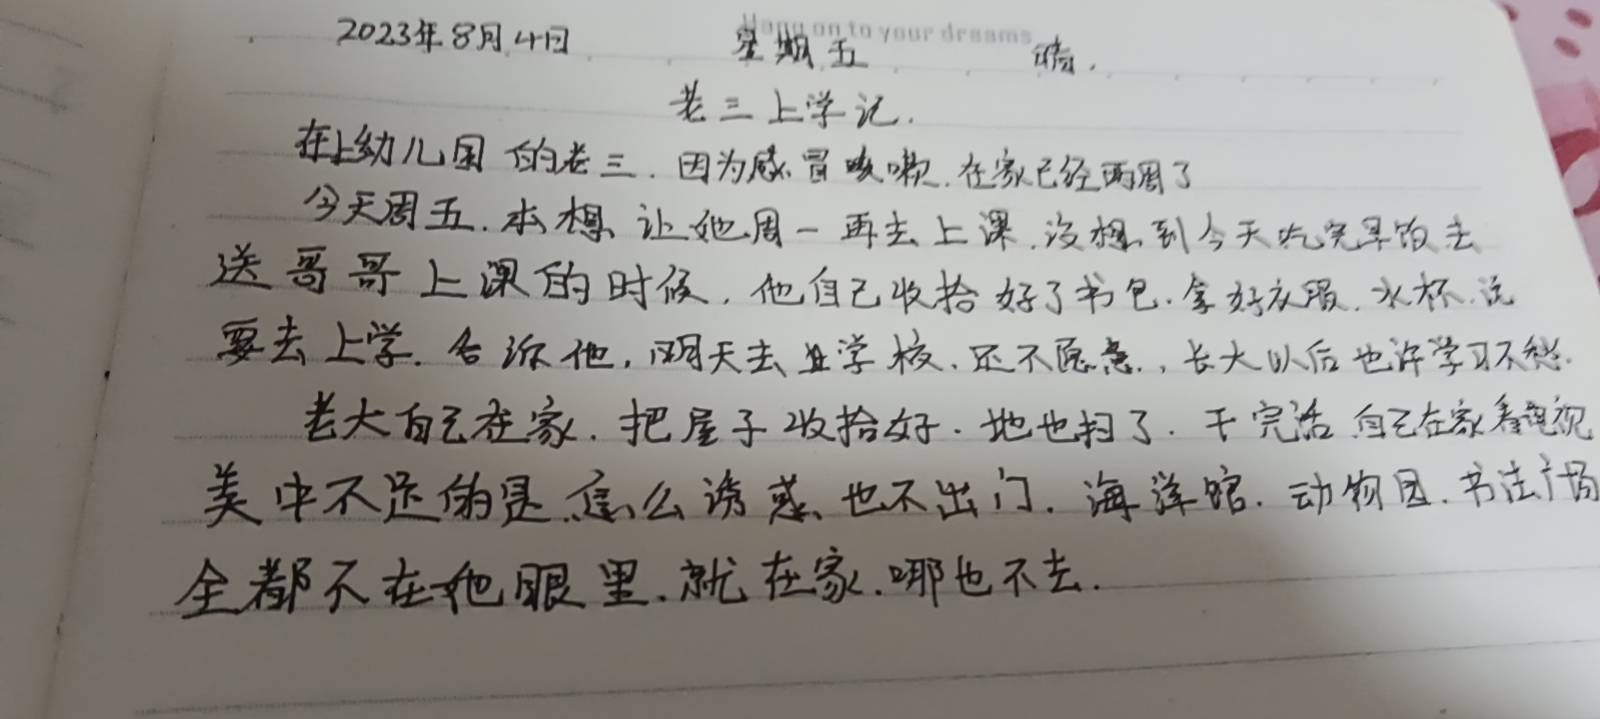 Hang on to your dreams
2023年8月4日 星期五 晴.
老三上学记.
在上幼儿园的老三.因为感冒咳嗽.在家已经两周了
今天周五.本想让她周一再去上课.没想到今天吃完早饭去
送哥哥上课的时候.他自己收拾好了书包.拿好衣服.水杯.说
要去上学.告诉他,明天去上学校.还不愿意.,长大以后也许学习不愁.
老大自己在家.把屋子收拾好.地也扫了.干完活自己在家看电视
美中不足的是.怎么诱惑也不出门.海洋馆.动物园.书法广场
全都不在她眼里.就在家.哪也不去.